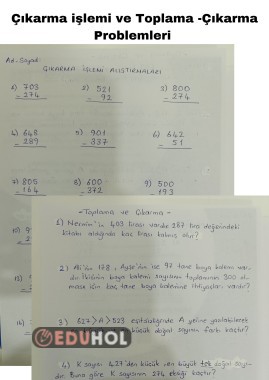 Çıkarma işlemi ve Toplama -Çıkarma
Problemleri
Ad-Soyad:
ÇIKARMA İŞLEMİ ALIŞTIRMALARI
1) 703 2) 521 3) 800
- 274 - 92 - 274
4) 648 5) 901 6) 642
- 289 - 337 - 51
7) 805 8) 600 9) 500
- 164 - 372 - 193
10)
13)
16)
-Toplama ve Çıkarma-
1) Nermin'in 403 lirası vardır 267 lira değerindeki
kitabı aldığında kaç lirası kalmış olur?
2) Ali'nin 128, Ayşe'nin ise 92 tane boya kalemi var-
dır. İkisinin boya kalemi sayıları toplamının 300 ol-
ması için kaç tane boya kalemine ihtiyaçları vardır?
3) 627 > A > 523 eşitsizliğinde A yerine yazılabilecek
küçük doğal sayının farkı kaçtır?
4) K sayısı 427'den küçük en büyük tek doğal sayı-
dır. Buna göre K sayısının 274 eksiği kaçtır?
EDUHOL